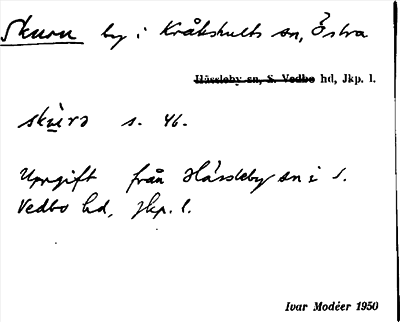 Skuru by i Kråkshults sn, Östra
Hässleby sn, S. Vedbo hd, Jkp. l.
skùrə s. 46.
Uppgift från Hässleby sn i S.
Vedbo hd, Jkp. l.
Ivar Modéer 1950